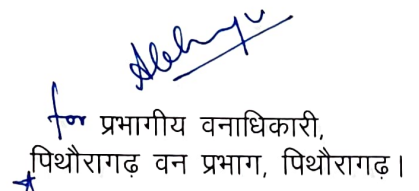 for प्रभागीय वनाधिकारी,
पिथौरागढ़ वन प्रभाग, पिथौरागढ़।